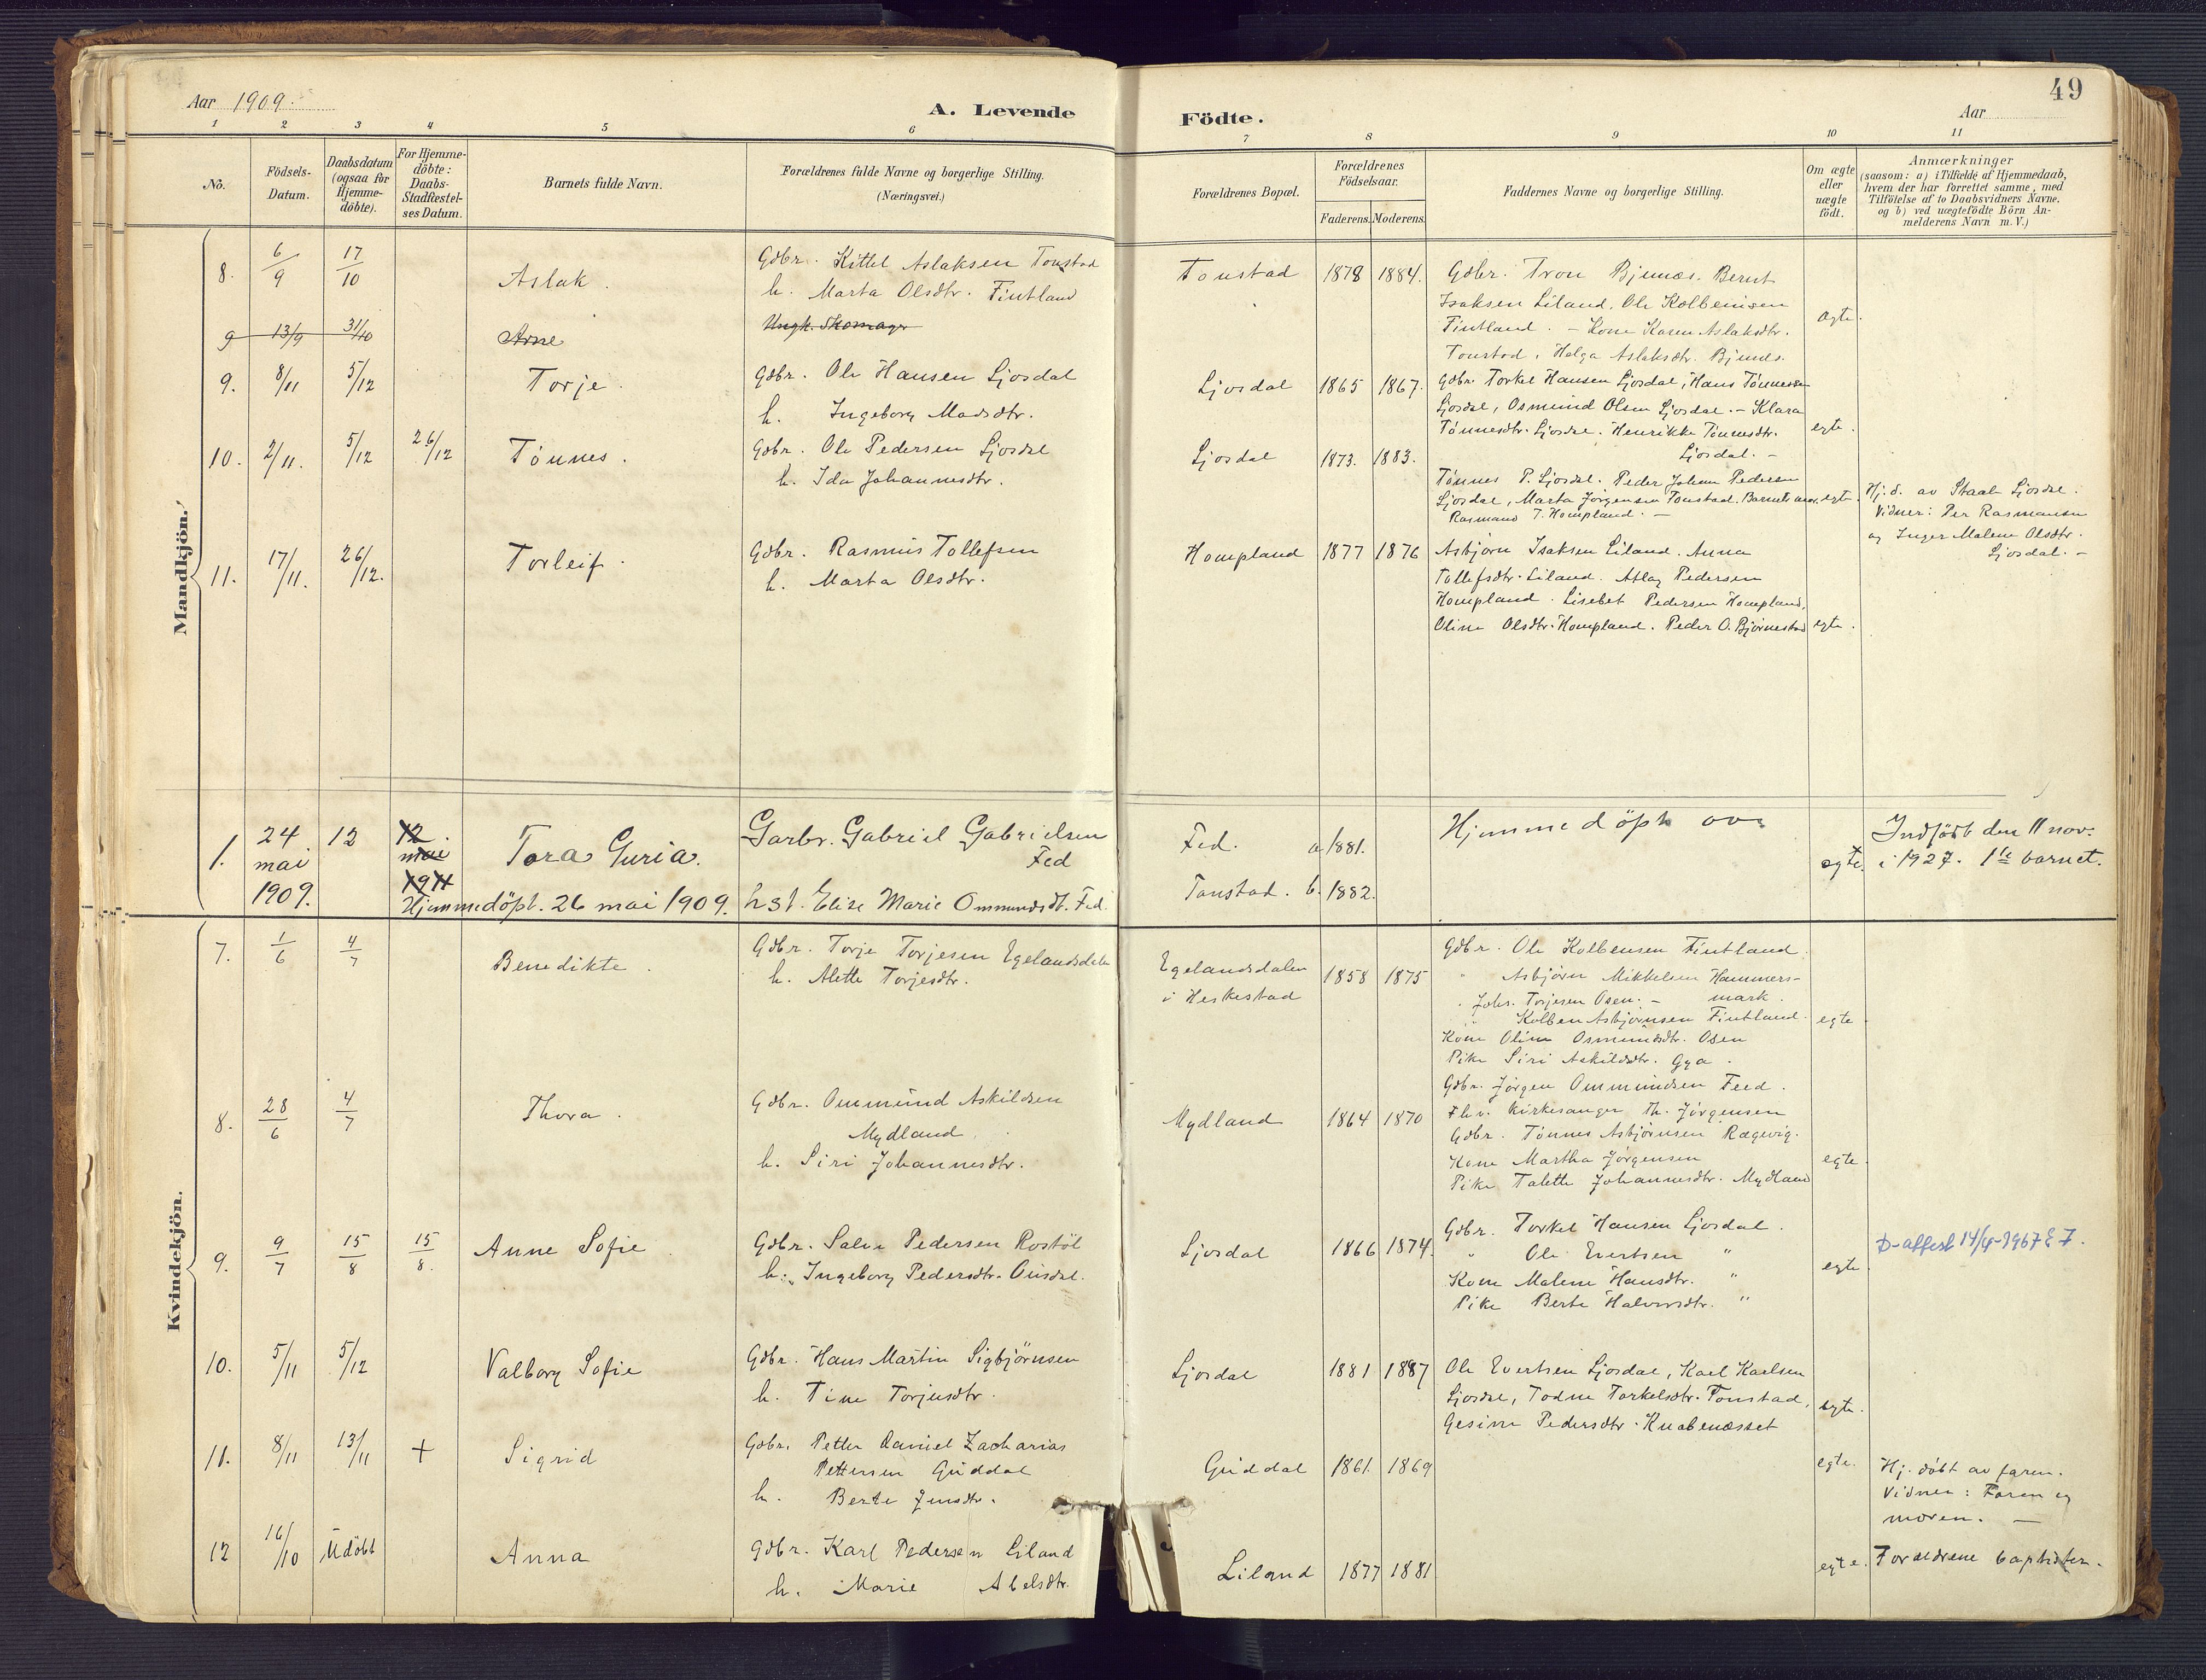 49
Aar 1909.
A. Levende
Födte.
Aar
1 2 3 4 5 6 7 8 9 10 11
No.
Födsels-
Datum.
Daabsdatum
(ogsaa for
Hjemme-
döbte).
For Hjemme-
döbte:
Daabs-
Stadfæstel-
ses Datum.
Barnets fulde Navn.
Forældrenes fulde Navne og borgerlige Stilling.
(Næringsvei.)
Forældrenes Bopæl.
Forældrenes
Födselsaar.
Faderens. Moderens.
Faddernes Navne og borgerlige Stilling.
Om ægte
eller
uægte
födt.
Anmærkninger
(saasom: a) i Tilfælde af Hjemmedaab,
hvem der har forrettet samme, med
Tilföielse af to Daabsvidners Navne.
og b) ved uægtefödte Börn An-
melderens Navn m. V.)
Mandkjön.
8. 6/9 17/10 Aslak.
Gdbr. Kittel Aslaksen Tonstad
h. Marta Olsdtr. Fintland
Tonstad 1878 1884.
Gdbr. Tron Bjunes. Bernt
Isaksen Liland. Ole Kolbenisen
Fintland. - Kone Karen Aslaksdtr.
Tonstad, Helga Aslaksdtr. Bjunes.
ægte.
9 13/9 31/10 Arne
Ungk. Skomager
9. 8/11 5/12 Torje.
Gdbr. Ole Hansen Ljosdal
h. Ingeborg Madsdtr.
Ljosdal 1865 1867.
Gdbr. Torkel Hansen Ljosdal, Hans Tønnessen
Ljosdal, Osmund Olsen Ljosdal. - Klara
Tønnesdtr. Ljosdal. Henrikke Tønnesdtr.
Ljosdal. -
egte.
10. 2/11. 5/12 26/12 Tønnes.
Gdbr. Ole Pedersen Ljosdal
h. Ida Johannesdtr.
Ljosdal 1873. 1883.
Tønnes P. Ljosdal. Peder Johan Pedersen
Ljosdal, Marta Jørgensen Tonstad. Barnets mor.
Rasmus T. Hompland. -
egte.
Hj. d. av Staale Ljosdal.
Vidner: Per Rasmussen
og Inger Malene Olsdtr.
Ljosdal. -
11. 17/11. 26/12. Torleif.
Gdbr. Rasmus Tollefsen
h. Marta Olsdtr.
Hompland 1877 1876
Asbjørn Isaksen Liland. Anna
Tollefsdtr. Liland. Atlag Pedersen
Hompland. Lisebet Pedersen Hompland,
Oline Olsdtr. Hompland. Peder O. Bjørnestad
egte.
1. 24 mai 1909. 12 12. mai 1911
Tora Guria.
Garbr. Gabriel Gabrielsen
Fed
Hjemmedöpt. 26 mai 1909. hst. Elise Marie Ommundsdt. Fed.
Fed. a. 1881.
Tonstad. b. 1882.
Hjemmedöpt av
egte.
Indfört den 11 nov.
i 1927. 1ste barnet.
Kvindekjön.
7. 1/6 4/7 Benedikte.
Gdbr. Torje Torjesen Egelandsdalen
h. Alette Torjesdtr.
Egelandsdalen
i Heskestad
1858 1875
Gdbr. Ole Kolbensen Fintland.
" Asbjørn Mikkelsen Hammers-
mark.
" Johs. Torjesen Osen. -
" Kolben Asbjørnsen Fintland.
Kone Oline Osmundsdtr. Osen
Pike Siri Askildsdtr. Gya.
egte.
8. 28/6 4/7 Thora.
Gdbr. Ommund Askildsen
Mydland.
h. Siri Johannesdtr.
Mydland 1864 1870
Gdbr. Jørgen Ommundsen Feed.
Fhv. Kirkesanger Th. Jørgensen
Gdbr. Tønnes Asbjørnsen Rægevig.
Kone Martha Jørgensen
Pike Talette Johannesdtr. Mydland
egte.
9. 9/7 15/8 15/8. Anne Sofie.
Gdbr. Salve Pedersen Rostöl
h. Ingeborg Pedersdtr. Ousdal.
Ljosdal 1866 1874.
Gdbr. Torkel Hansen Ljosdal.
" Ole Evertsen "
Kone Malene Hansdtr. "
Pike Berte Halvorsdtr. "
egte
D-attest 14/4-1967 E F.
10. 5/11 5/12 Valborg Sofie
Gdbr. Hans Martin Sigbjörnsen
h. Tine Torjusdtr.
Ljosdal 1881 1887
Ole Evertsen Ljosdal, Karl Karlsen
Ljosdal, Todne Torkelsdtr. Tonstad,
Gesine Pedersdtr. Knabenæsset
egte.
11. 8/11 13/11 + Sigrid
Gdbr. Petter Daniel Zacharias
Pettersen Guddal
h. Berte Jensdtr.
Guddal 1861. 1869
egte.
Hj. döbt av faren.
Vidner: Faren og
moren. -
12 16/10 Udöbt Anna
Gdbr. Karl Pedersen Liland
h. Marie Abelsdtr.
Liland 1877 1881
egte.
Forældrene baptister.